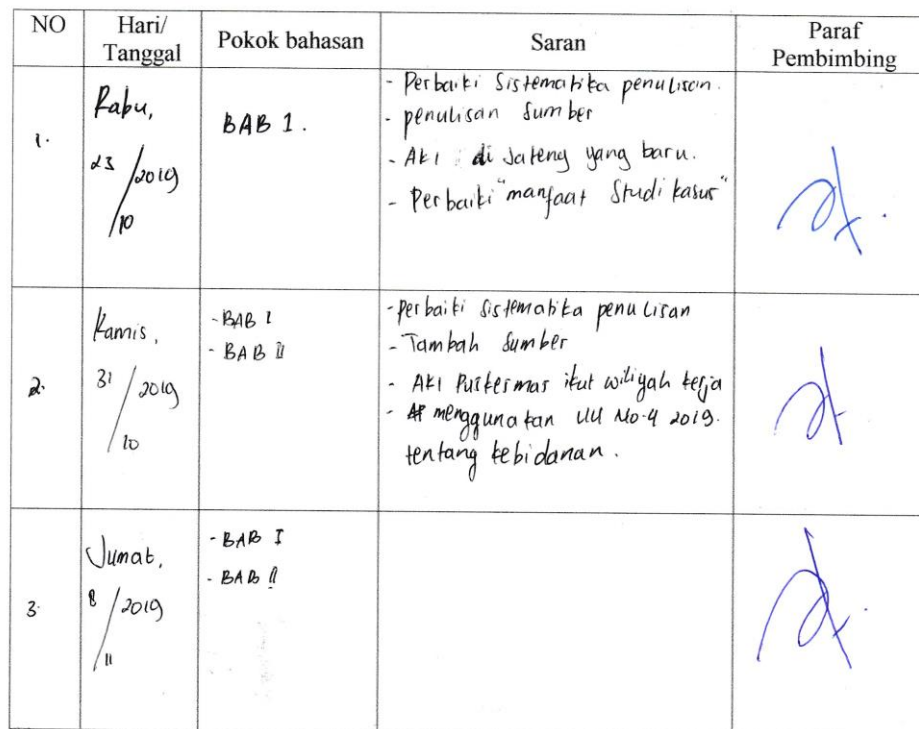 NO Hari/ Tanggal Pokok bahasan Saran Paraf Pembimbing
1.
Rabu,
23/2019
/10
BAB 1.
- Perbaiki Sistematika penulisan.
- penulisan Sumber
- AKI di Jateng yang baru.
- Perbaiki "manfaat Studi kasus"
2.
Kamis,
31/2019
/10
- BAB I
- BAB II
- perbaiki sistematika penulisan
- Tambah Sumber
- AKI Puskesmas ikut wiliyah kerja
- menggunakan UU No.4 2019.
tentang kebidanan.
3.
Jumat,
8/2019
/11
- BAB I
- BAB II